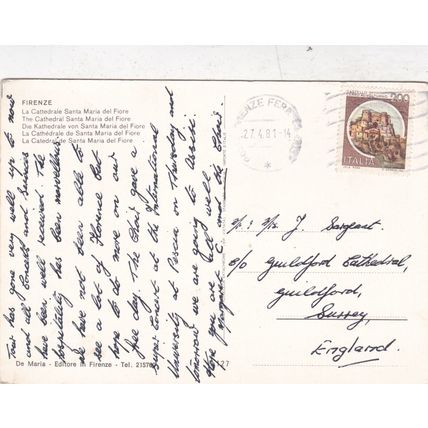 FIRENZE
La Cattedrale Santa Maria del Fiore
The Cathedral Santa Maria del Fiore
Die Kathedrale von Santa Maria del Fiore
La Cathédrale de Santa Maria del Fiore
La Catedral de Santa Maria del Fiore
Tour has gone very well up to now
and all Concerts and services
have been well received. The
travelling has been
we have not been able to
see a lot of Florence but
hope to do more on our
free day. The Choir gave a
super concert at the International
University at Perugia on Thursday and
tomorrow we are going to Assisi.
Hope you are all well.
Margaret C. and the Choir.
De Maria - Editore in Firenze - Tel.
27
FIRENZE FERR
27.4.81-14
200
ITALIA
J. Sargent
c/o Guildford Cathedral,
Guildford,
Surrey,
England.